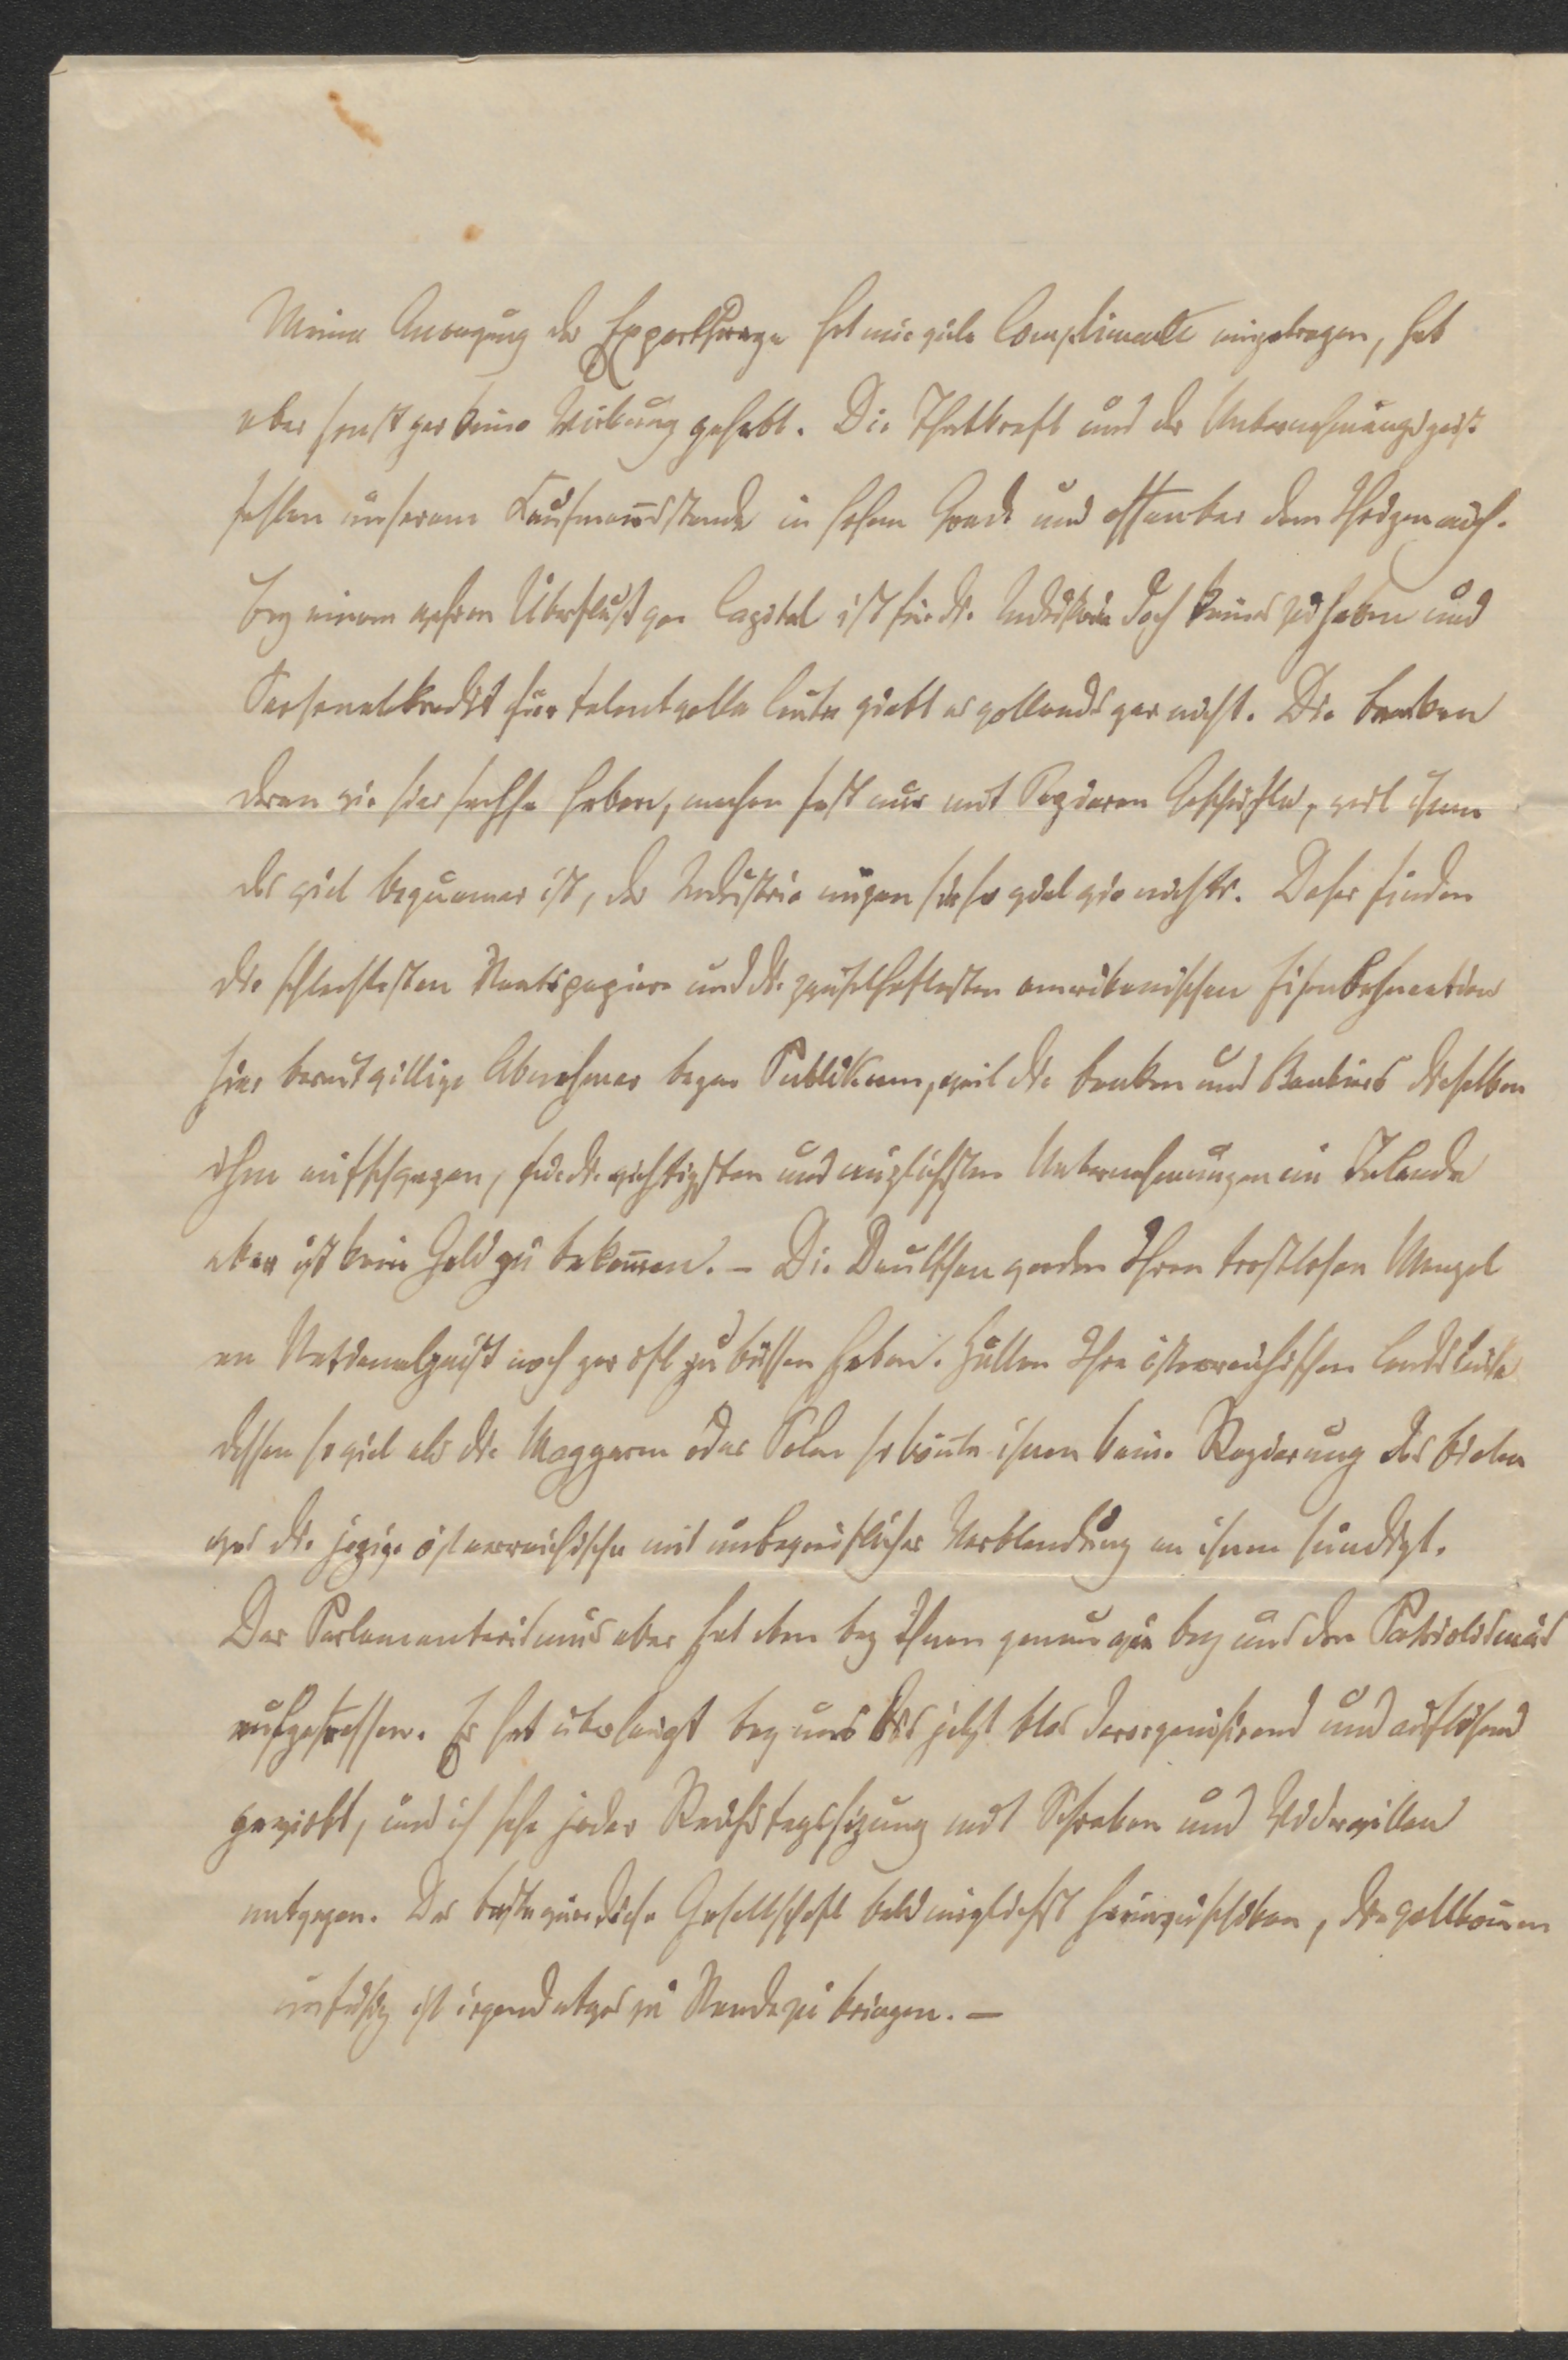 Meine Anregung der Exportfrage hat mir viele Complimente eingetragen, hat
aber sonst gar keine Wirkung gehabt. Die Thatkraft und der Unternehmungsgeist
fehlen unserem Kaufmannsstande in hohem Grade und offenbar dem Ihrigen auch.
Bey einem wahren Überfluß von Capital ist für die Industrie doch keines zu haben und
Personalkredit für talentvolle Leute giebt es vollends gar nicht. Die Banken
deren wir hier sechse haben, machen fast nur mit Papieren Geschäfte, weil ihnen
das viel bequemer ist, der Industrie nüzen sie so viel wie nichts. Daher finden
die schlechtesten Staatspapiere und die zweifelhaftesten amerikanischen Eisenbahnactien
hier bereitwillige Abnehmer beym Publikum, weil die Banken und Bankiers dieselben
ihm aufschwazen, für die wichtigsten und nüzlichsten Unternehmungen im Inlande
aber ist kein Geld zu bekommen. – Die Deutschen werden Ihren trostlosen Mangel
an Nationalgeist noch gar oft zu büssen haben. Hätten Ihre österreichischen Landsleute
dessen so viel als die Magyaren oder Polen so könnte ihnen keine Regierung das bieten
was die jezige österreichische mit unbegreiflicher Verblendung an ihnen sündigt.
Der Parlamentarismus aber hat eben bey Ihnen genau wie bey uns den Patriotismus
aufgefressen. Er hat überhaupt bey uns bis jetzt blos desorganisirend und auflösend
gewirkt, und ich sehe jeder Reichstagssizung mit Schreken und Widerwillen
entgegen. Das beste wäre diese Gesellschaft bald möglichst heimzuschiken, die vollkommen
unfähig ist irgend etwas zu Stande zu bringen. –